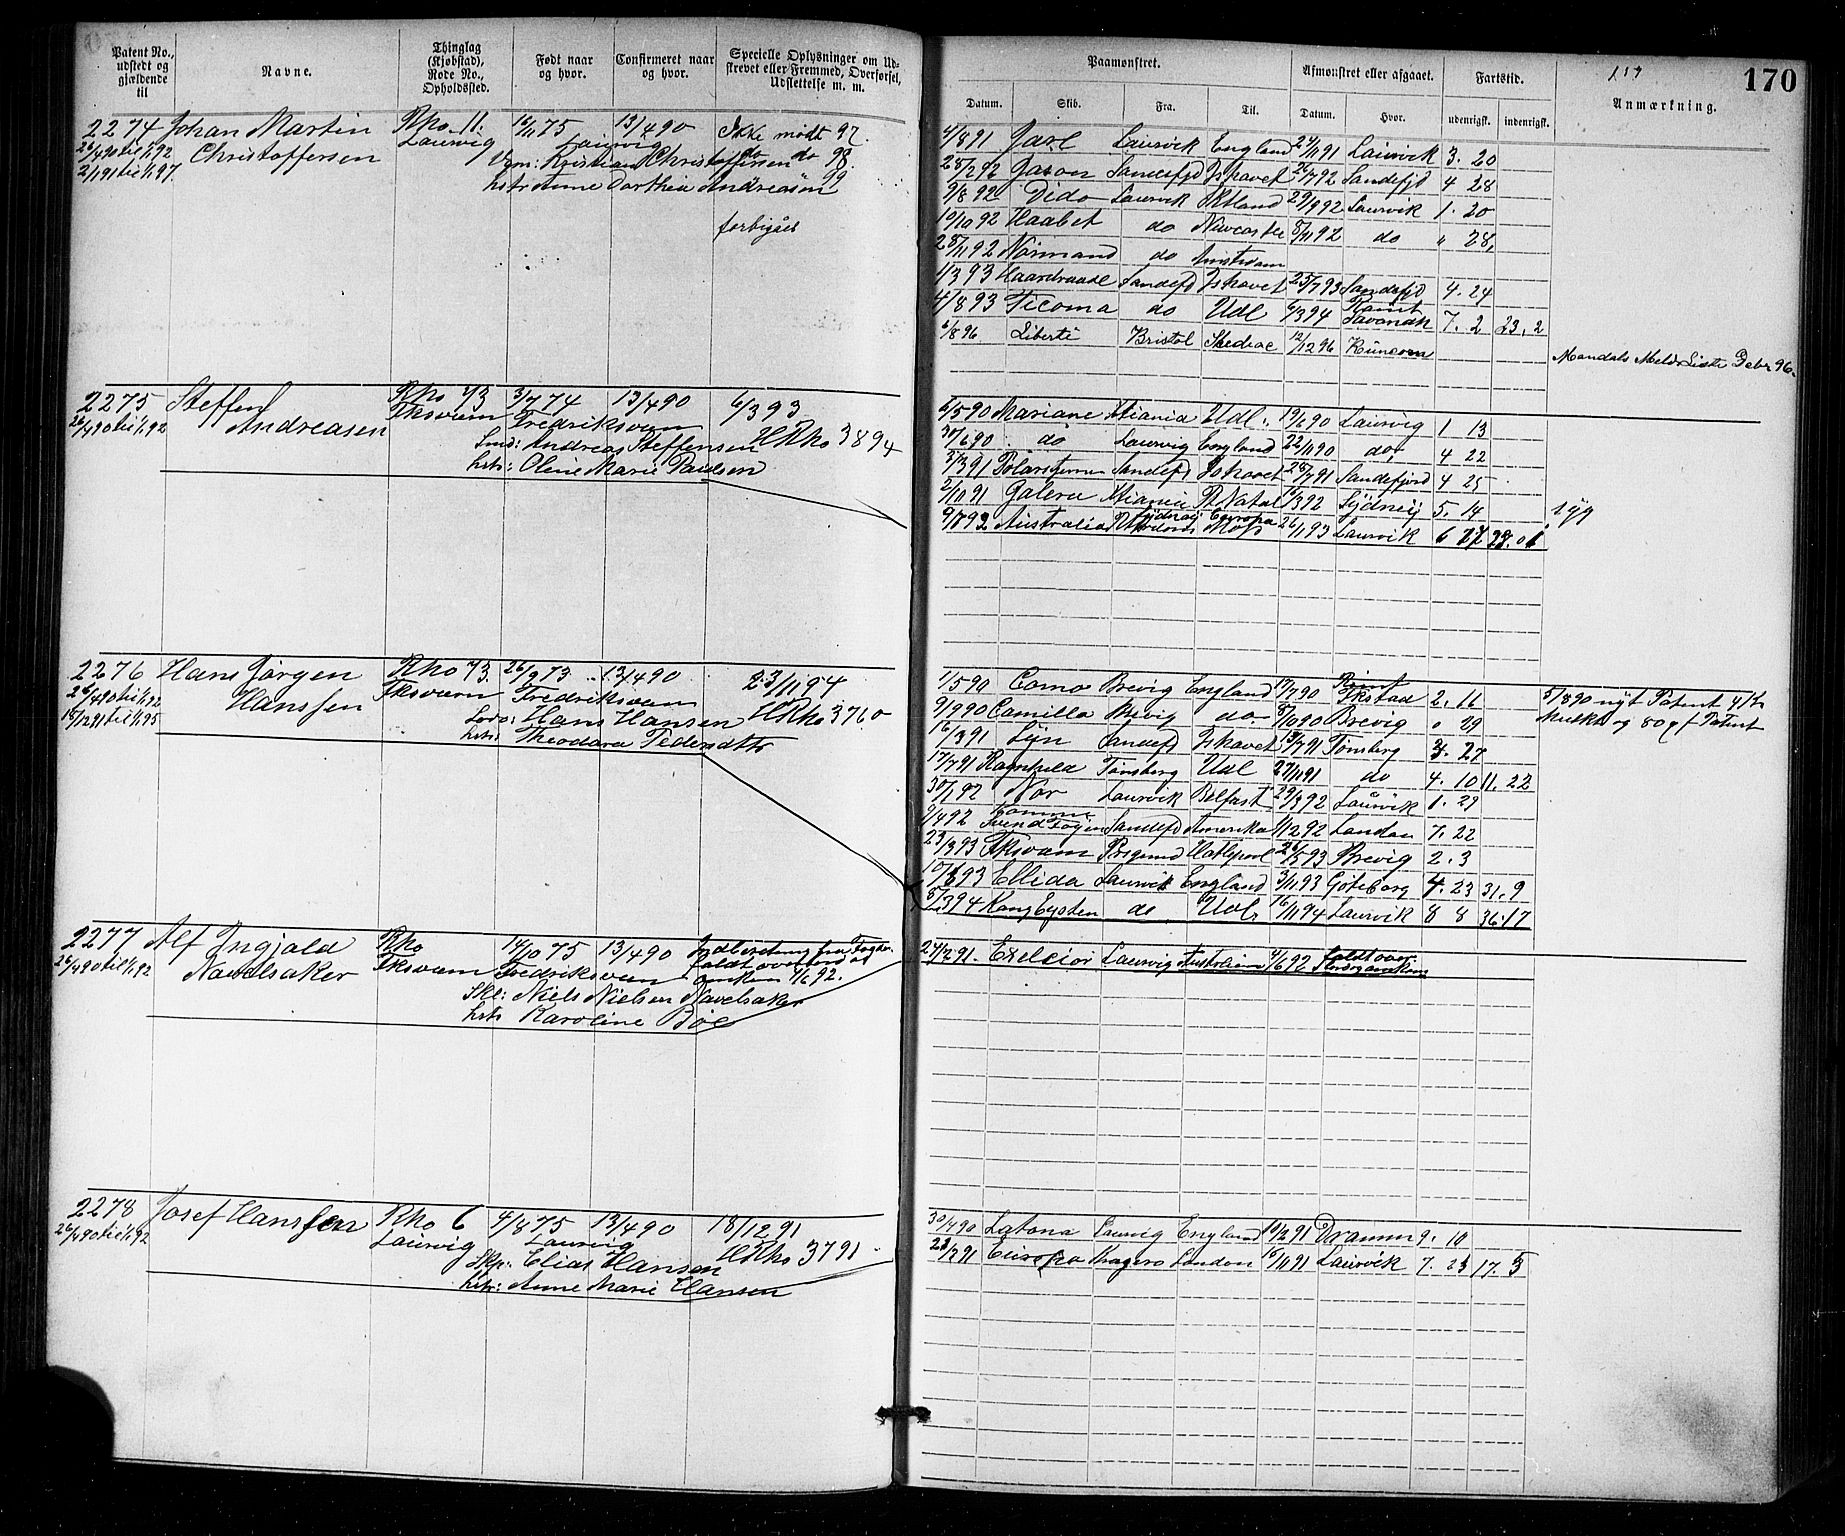 Patent No., udstedt og gjældende til
Navne.
Thinglag (Kjøbstad), Rode No., Opholdssted.
Født naar og hvor.
Confirmeret naar og hvor.
Specielle Oplysninger om Udstrevet eller Fremmed, Overførsel, Udslettelse m. m.
Paamønstret.
Afmønstret eller afgaaet.
Fartstid.
Anmærkning.
170
Datum. Skib. Fra. Til. Datum. Hvor. udenrigsk. indenrigsk.
2274 Johan Martin Rho 11. 16/11 75 13/4 90 Ikke mødt 97.
26/4 90 til 1/1 92 Christoffersen Laurvig Laurvig do do 98.
2/1 91 til 1/1 97. Kristian Christoffersen
hstr Anne Dorthea Andreasen 99
forbigåes
4/8 91 Jarl Laurvik England 24/11 91 Laurvik 3. 20
25/2 92 Jason Sandefjd Ishavet 26/7 92 Sandefjd 4 28
9/8 92 Dido Laurvik 29/9 92 Laurvik 1. 20
10/10 92 Haabet do Newcastle 8/11 92 do " 28,
28/11 92 Normand do Amstrdam
1/3 93 Haardraade Sandefd Ishavet 25/7 93 Sandefjd 4. 24
4/8 93 Tecoma do Udl 6/3 94 Rømt Savanah 7. 2 23. 2
6/8 96 Liberté Bristol 12/12 96 Runcorn
Mandals Meld Liste Debr 96.
2275 Steffen Rho 73 3/7 74 13/4 90 6/3 93
26/4 90 til 1/1 92 Andreasen Fksværn Fredriksværn HRho 3894
Smd: Andreas Steffensen
hstr: Oline Marie Paulsen
6/5 90 Mariane Xtiania Udl. 19/6 90 Laurvig 1 13
30/6 90 do Laurvig England 22/11 90 do 4 22
3/3 91 Polarstjernen Sandefd Ishavet 28/7 91 Sandefjord 4 25
2/10 91 Galera Xtiania Pt Natal 16/3 92 Sydney 5. 14 syg
9/7 92 Australia Sydney Europa Moss 26/1 93 Laurvik 6 27
2276 Hans Jørgen Rho 73. 26/9 73 13/4 90 23/11 94
26/4 90 til 1/1 92 Hanssen Fksværn Fredriksværn HRho 3760
15/12 91 til 1/1 95 Lods: Hans Hansen
hstr: Theodora Pedersdtr
1/5 90 Como Brevig England 17/7 90 Rømt Fkstad 2. 16
9/9 90 Camilla Brevig do 8/10 90 Brevig 0 29
16/3 91 Lyn Sandefd Ishavet 13/7 91 Tønsberg 3. 27
17/7 91 Ragnhild Tønsberg Udl 27/11 91 do 4. 10 11. 22
30/1 92 Nor Laurvik Belfast 29/3 92 Laurvik 1. 29
9/4 92 Svend Foyen Sandefd Amerika 1/12 92 London 7. 22
23/3 93 Fksværn Prsgrund Hatlepool 26/5 93 Brevig 2. 3
10/6 93 Ellida Laurvik England 3/11 93 Gøteborg 4. 23 31. 9
8/3 94 Kong Eysten do Udl, 16/11 94 Laurvik 8 8 36. 17
5/8 90 nyt Patent
Mulkt og 80 ø f Patent
2277 Alf Ingjald Rho 14/10 75 13/4 90 Indberetning fra Fogden
26/4 90 til 1/1 92 Navelsaker Fksværn Fredriksværn faldt overbord
4/6 92.
Skl: Niels Nielsen Navelsaker
hstr Karoline Bøe
27/12 91. Exelcior Laurvig Australien 4/6 92 faldt over
2278 Josef Hanssen Rho 6 4/8 75 13/4 90 18/12 91
26/4 90 til 1/1 92 Laurvig Laurvig HRho 3791
Skp: Elias Hansen
hstr: Anne Marie Hansen
30/4 90 Latona Laurvig England 10/2 91 Dramm 9. 10
23/3 91 Europa Kragerø London 16/11 91 Laurvik 7. 23 17. 3